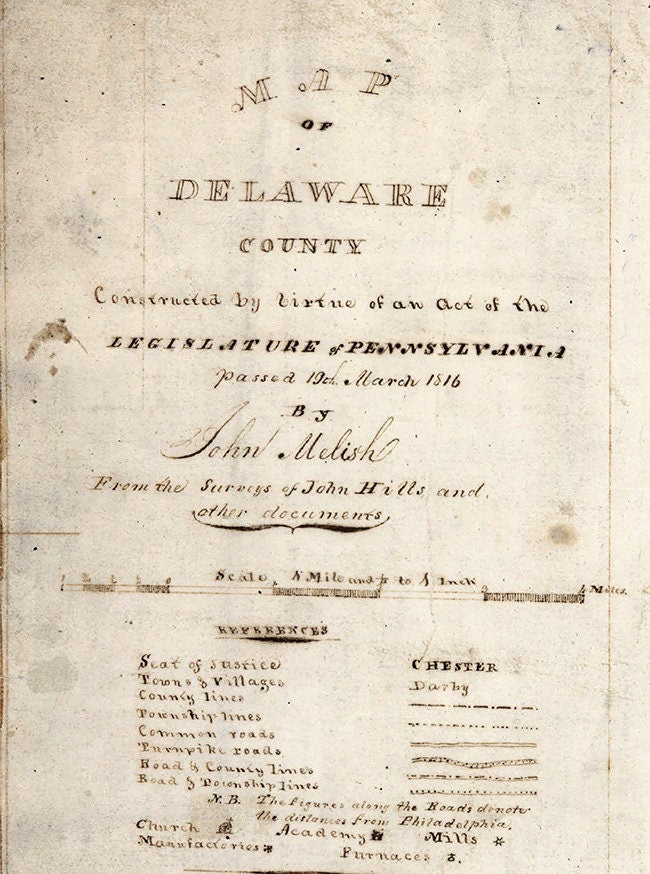 MAP
OF
DELAWARE
COUNTY
Constructed by Virtue of an Act of the
LEGISLATURE of PENNSYLVANIA
Passed 19th March 1816
By
John Melish
From the Surveys of John Hills, and,
other documents,
Scale, 1 Mile and ½ to 1 Inch
4 Miles.
REFERENCES
Seat of Justice CHESTER
Towns & Villages Darby
County lines
Township lines
Common roads
Turnpike roads
Road & County lines
Road & Township lines
N.B. The figures along the Roads denote
the distances from Philadelphia.
Church Academy Mills
Manufactories Furnaces